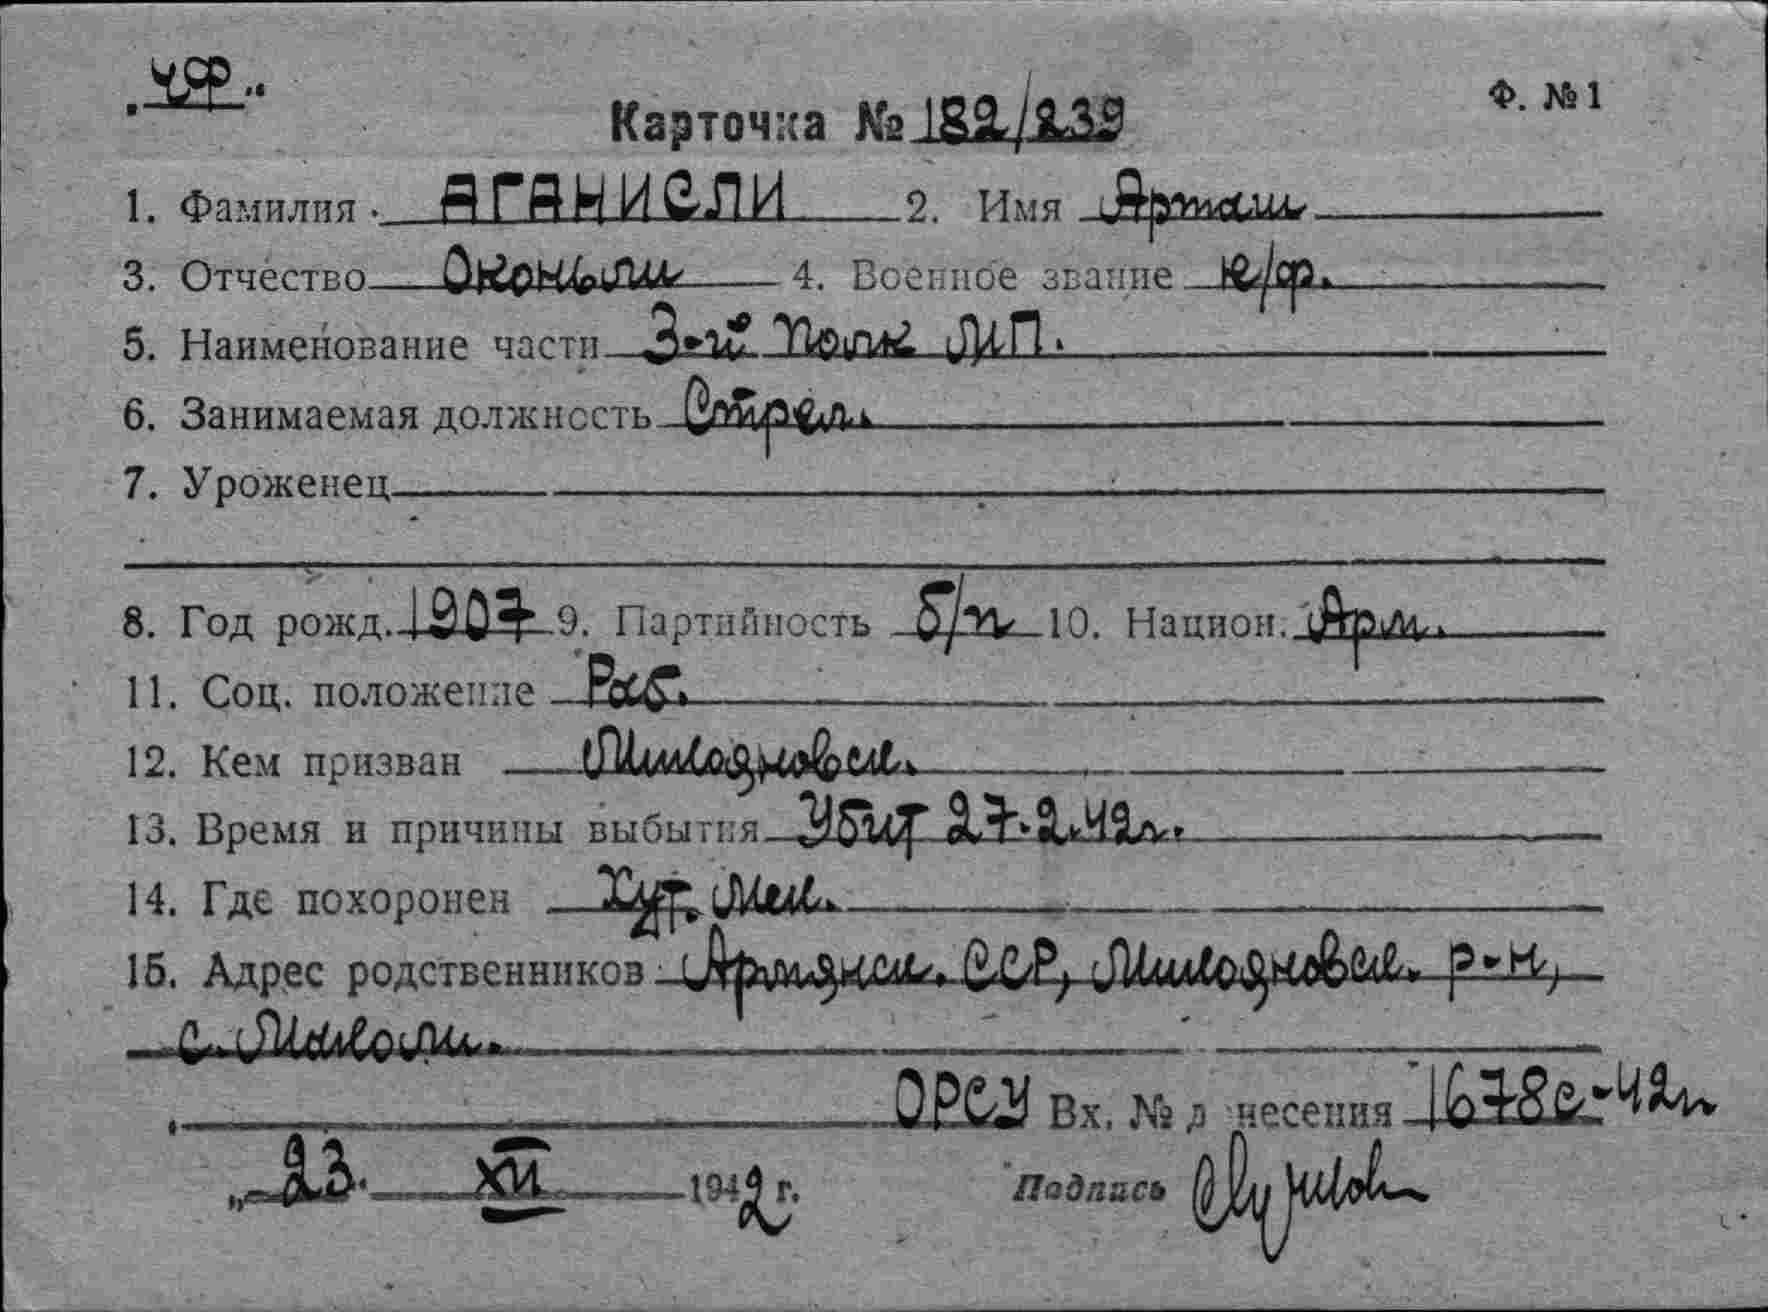 „ЧФ“
Ф. №1
Карточка № 182/239
1. Фамилия АГАНИСЛИ 2. Имя Арташ
3. Отчество 4. Военное звание к/ф.
5. Наименование части 3-й Полк МП.
6. Занимаемая должность Стрел.
7. Уроженец
8. Год рожд. 1907 9. Партийность б/п 10. Национ. Арм.
11. Соц. положение Раб.
12. Кем призван Микояновск.
13. Время и причины выбытия Убит 27.2.42г.
14. Где похоронен Хут. Мек.
15. Адрес родственников Армянск. ССР, Микояновск. р-н,
с.
ОРСУ Вх. № донесения 1678с-42г
„23“ XII 1942 г. Подпись